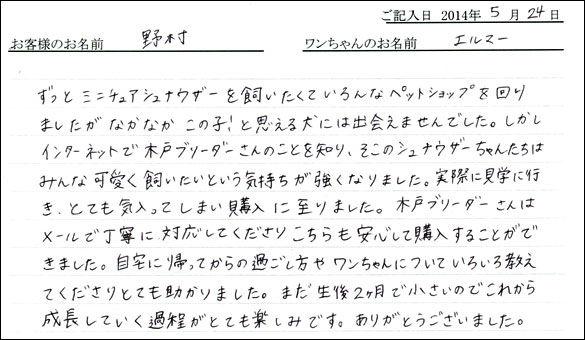 ご記入日 2014年 5月 24日
お客様のお名前 野村 ワンちゃんのお名前 エルマー
ずっと ミニチュアシュナウザーを飼いたくていろんなペットショップを回り
ましたが なかなか この子!と思える犬には出会えませんでした。しかし
インターネットで木戸ブリーダーさんのことを知り、そこのシュナウザーちゃんたちは
みんな可愛く飼いたいという気持ちが強くなりました。実際に見学に行
き、とても気入ってしまい購入に至りました。木戸ブリーダーさんは
メールで丁寧に対応してくださりこちらも安心して購入することがで
きました。自宅に帰ってからの過ごし方やワンちゃんについていろいろ教え
てくださりとても助かりました。まだ生後2ヶ月で小さいのでこれから
成長していく過程がとても楽しみです。ありがとうございました。